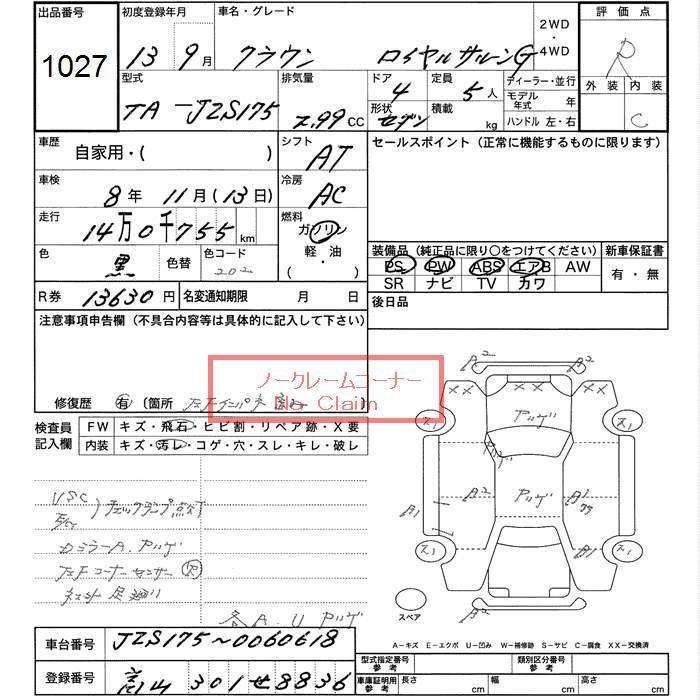 出品番号 1027
初度登録年月 13年 9月
車名・グレード クラウン ロイヤルサルーンG
2WD・4WD
評価点 R
外装 内装 C
型式 TA-JZS175
排気量 2.99 CC
ドア 4
形状 セダン
定員 5人
積載 kg
ディーラー・並行
モデル年式 年
ハンドル 左・右
車歴 自家用・( )
シフト AT
セールスポイント(正常に機能するものに限ります)
車検 8年 11月(13日)
冷房 AC
走行 14万0千755km
燃料 ガソリン 軽・油 ( )
色 黒 色替 色コード 202
装備品(純正品に限り○をつけてください) 新車保証書
PS PW ABS エアB AW 有・無
SR ナビ TV カワ
R券 13630円 名変通知期限 月 日
後日品
注意事項申告欄(不具合内容等は具体的に記入して下さい)
ノークレームコーナー
No Claim
修復歴 有 〔箇所
検査員記入欄
FW キズ・飛石・ヒビ割・リペア跡・X要
内装 キズ・汚レ・コゲ・穴・スレ・キレ・破レ
VSC
チェックランプ点灯
DミラーA.アリゲ
左Fコーナーセンサー 欠
下廻り
各A.U アリゲ
A2 A2
XX XX
アリゲ
ス1 ス1
アリゲ
A2 アリゲ A1
A1
ス1 A1 ス1
A2 A2
スペア
A-キズ E-エクボ U-凹み W-補修跡 S-サビ C-腐食 XX-交換済
車台番号 JZS175~0060618
型式指定番号 参考 類別区分番号 参考
登録番号 富山 301 せ 8836
車庫証明用 参考 長さ cm 幅 cm 高さ cm